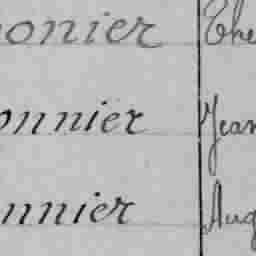 onier The
onnier Jean
nnier Aug